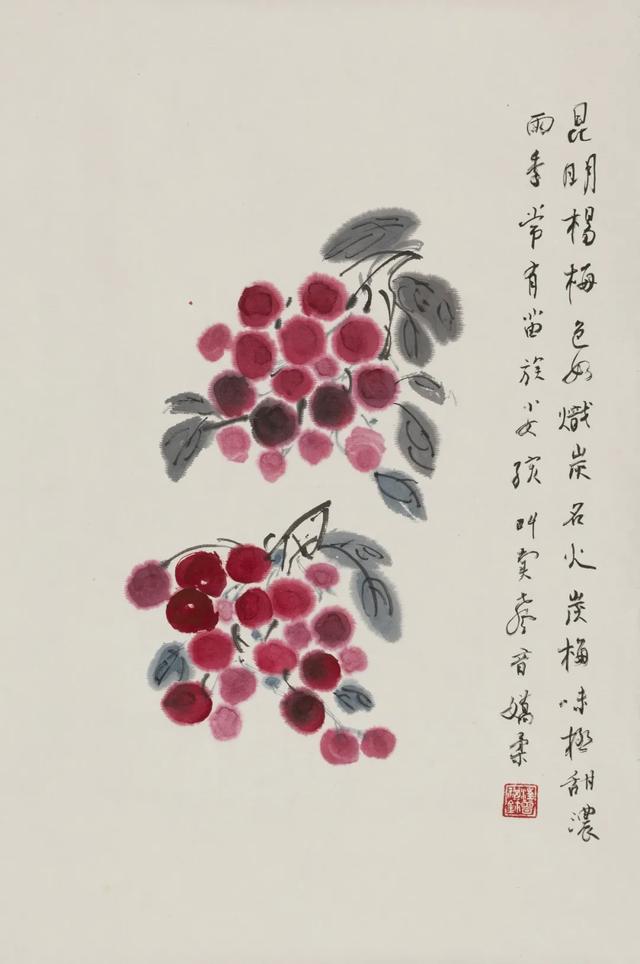 昆明楊梅色如熾炭名火炭梅味極甜濃
雨季常有苗族小女孩叫賣聲音嬌柔